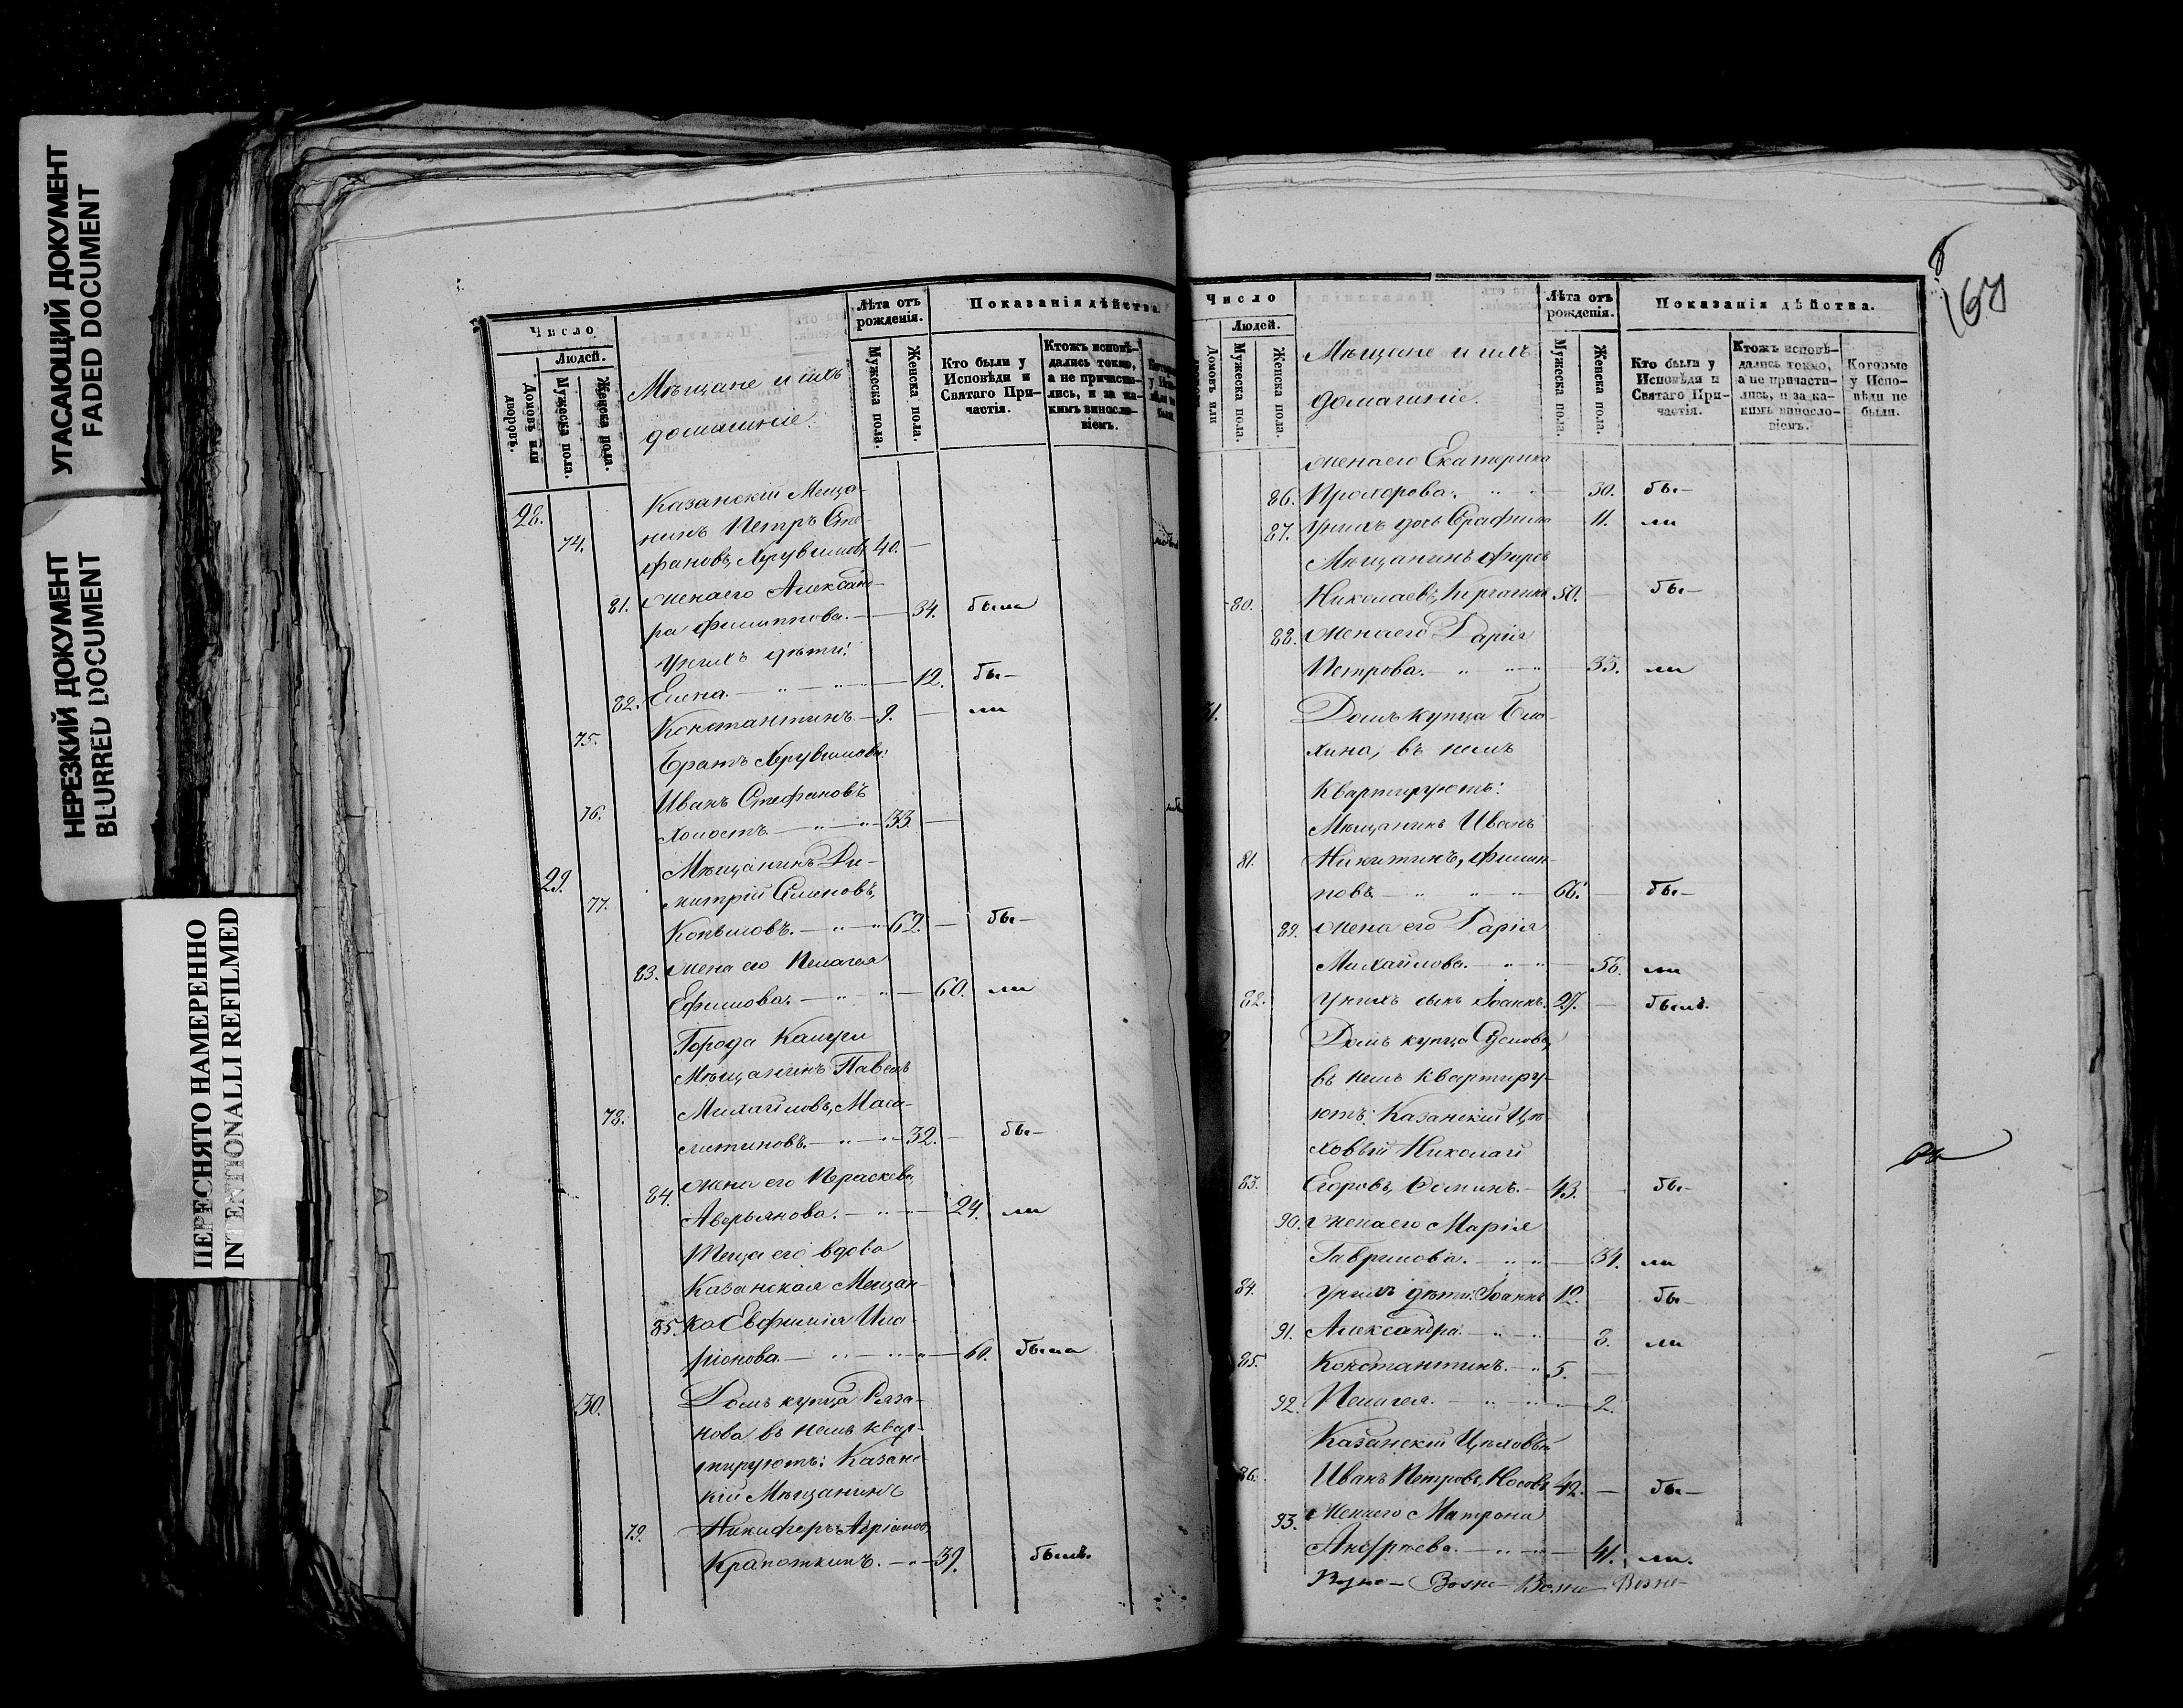 УГАСАЮЩИЙ ДОКУМЕНТ
FADED DOCUMENT
НЕРЕЗКИЙ ДОКУМЕНТ
BLURRED DOCUMENT
ПЕРЕСНЯТО НАМЕРЕННО
INTENTIONALLI REFILMED
Число
Людей.
Домовъ или дворовъ.
Мужеска пола.
Женска пола.
Мѣщане и ихъ
домашніе.
Лѣта отъ рожденія.
Мужеска пола.
Женска пола.
Показанія дѣйства.
Кто были у Исповѣди и Святаго Причастія.
Ктожъ исповѣдались токмо, а не причастились, и за какимъ винословіемъ.
28. Казанскій Меща-
74. нинъ Петръ Сте-
фановъ, Херувимовъ 40. —
81. Жена его Александ-
ра Филиппова. — 34. была
У нихъ дѣти:
82. Елена. — 12. бы-
75. Константинъ. — 9. — ли
Братъ Херувимова:
76. Иванъ Стефановъ
холостъ. — 33. —
29. Мѣщанинъ Ди-
77. митрій Семеновъ,
Копыловъ. — 62. — бы-
83. Жена его Пелагея
Ефимова. — 60. ли
Города Калуги
Мѣщанинъ Павелъ
78. Михайловъ, Мала-
литиновъ. — 32. — бы-
84. Жена его Праскева
Аверьянова. — 24. ли
Теща его вдова
Казанская Мещан-
85. ка Евфимія Ила-
ріонова. — 60. была
30. Домъ купца Ряза-
нова въ немъ квар-
тируютъ: Казанс
кій Мѣщанинъ
79. Никифоръ Адріановъ,
Крапоткинъ. — 39. былъ.
8
167
Число
Людей.
Домовъ или
Мужеска пола.
Женска пола.
Мѣщане и ихъ
домашніе.
Лѣта отъ рожденія.
Мужеска пола.
Женска пола.
Показанія дѣйства.
Кто были у Исповѣди и Святаго Причастія.
Ктожъ исповѣдались токмо, а не причастились, и за какимъ винословіемъ.
Которые у Исповѣди не были.
Жена его Екатерина
86. Прохорова. — 30. бы-
87. У нихъ дочь Серафима — 11. ли
Мѣщанинъ Фирсъ
80. Николаевъ, 50. — бы-
88. Жена его Дарія
Петрова. — 35. ли
31. Домъ купца Бло-
хина, въ немъ
Квартируютъ:
Мѣщанинъ Иванъ
81. Никитинъ, Филип-
повъ — 66. — бы-
89. Жена его Дарія
Михайлова. — 58. ли
82. У нихъ сынъ Іоаннъ. 27. — былъ.
Домъ купца Суслова,
въ немъ квартиру-
ютъ: Казанскій Цѣ-
ховый Николай
83. Егоровъ, Осипинъ. — 43. — бы-
90. Жена его Марія
Гаврилова. — 34. ли
84. У нихъ дѣти: Іоаннъ 12. — бы-
91. Александра. — 8. ли
85. Константинъ. — 5. —
92. Пелагея. — 2.
Казанскій Цѣховый
86. Иванъ Петровъ, Носовъ 42. — бы-
93. Жена его Матрона
Андреева. — 41. ли.